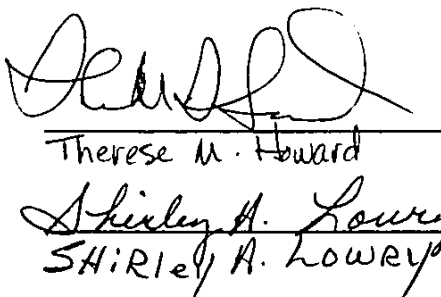 Therese M. Howard
Shirley A. Lowry
SHiRley A. LOWRY